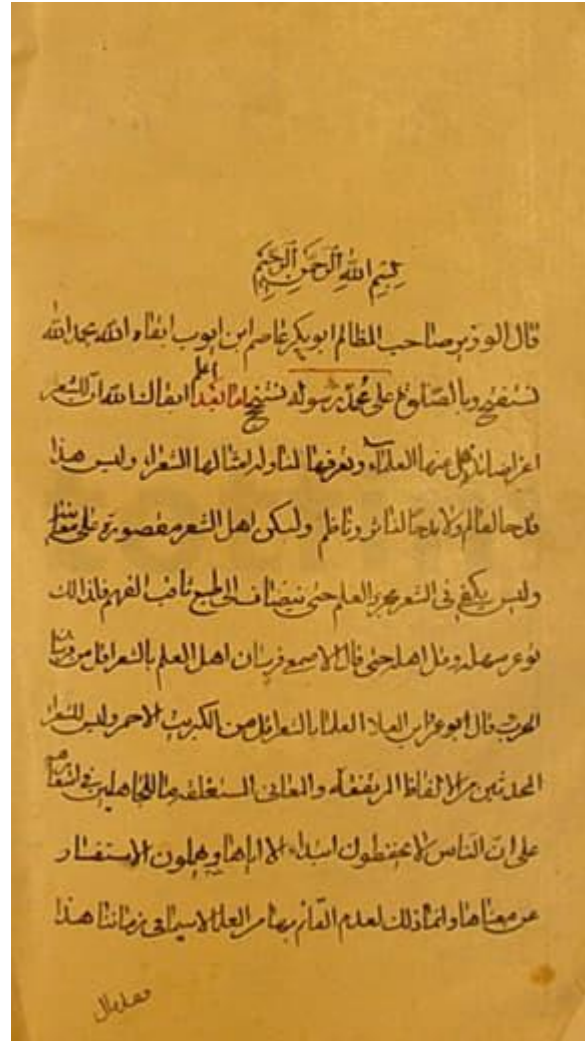 بسم الله الرحمن الرحيم
قال الوزير صاحب المظالم ابو بكر عاصم ابن ايوب ابقاه الله بحمد الله
نستفتح وبالصلوة على محمد رسوله نستنجح اما بعد اعلم ابقانا الله ان للشعر
اغراضا يذهل عنها العلماء ويعرفها لتناوله امثالها الشعراء وليس هذا
قدحا لعالم ولا مدحا لناثر وناظم ولكن اهل الشعر مقصورة على
وليس يكفى فى الشعر مجرد العلم حتى ينضاف الى طبع ثاقب الفهم فلذالك
توعر سهله وقل اهله حتى قال الاصمعى فرسان اهل العلم بالشعر اقل من فرسان
الحرب قال ابو عمرو ابن العلا العلماء بالشعر اقل من الكبريت الاحمر وليس للشعراء
المحدثين من الالفاظ المرتفعة والمعانى المستغلقة ما للجاهلين فى
على ان الناس لا يحفظون اشياء الا اياها ويهملون الاستفسار
عن معناها وانما ذلك لعدم القائم بها من العلماء لاسيما فى زماننا هذا